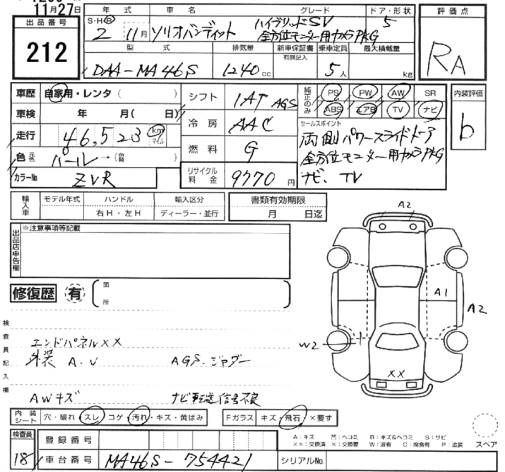 11月27日
出品番号
212
年式 車名 グレード ドア・形状 評価点
S・H・R 2 11月 ソリオバンディット ハイブリッドSV 5
全方位モニター用カメラPKG
RA
型式 排気量 新車保証書 乗車定員 最大積載量
有関記入
DAA-MA46S 1240cc 5人 kg
車歴 自家用・レンタ( )
車検 年 月( 日)
走行 46,523 km マイル
色 元色 パール→(替 )
カラーNo ZVR
シフト IAT AGS
冷房 AAC
燃料 G
リサイクル料金 9770円
純正のみ
PS PW AW SR
ABS エアB TV ナビ
内装評価
b
セールスポイント
両側パワースライドドア
全方位モニター用カメラPKG
ナビ、TV
輸入車 モデル年式 ハンドル 輸入区分
右H・左H ディーラー・並行
書類有効期限
月 日迄
出品店申告欄
※注意事項等記載
修復歴 有 箇所
検査員記入欄
エンドパネルXX
外装 A.U AGS.ジャダー
AWキズ ナビ転送信号不良
A2
A1
A2
W2
XX
内装シート 穴・破れ・スレ・コゲ・汚れ・キズ・黄ばみ
Fガラス キズ・飛石・×要す
A:キズ
スペア
検査員 18
登録番号
車台番号 MA46S-754421
シリアルNo